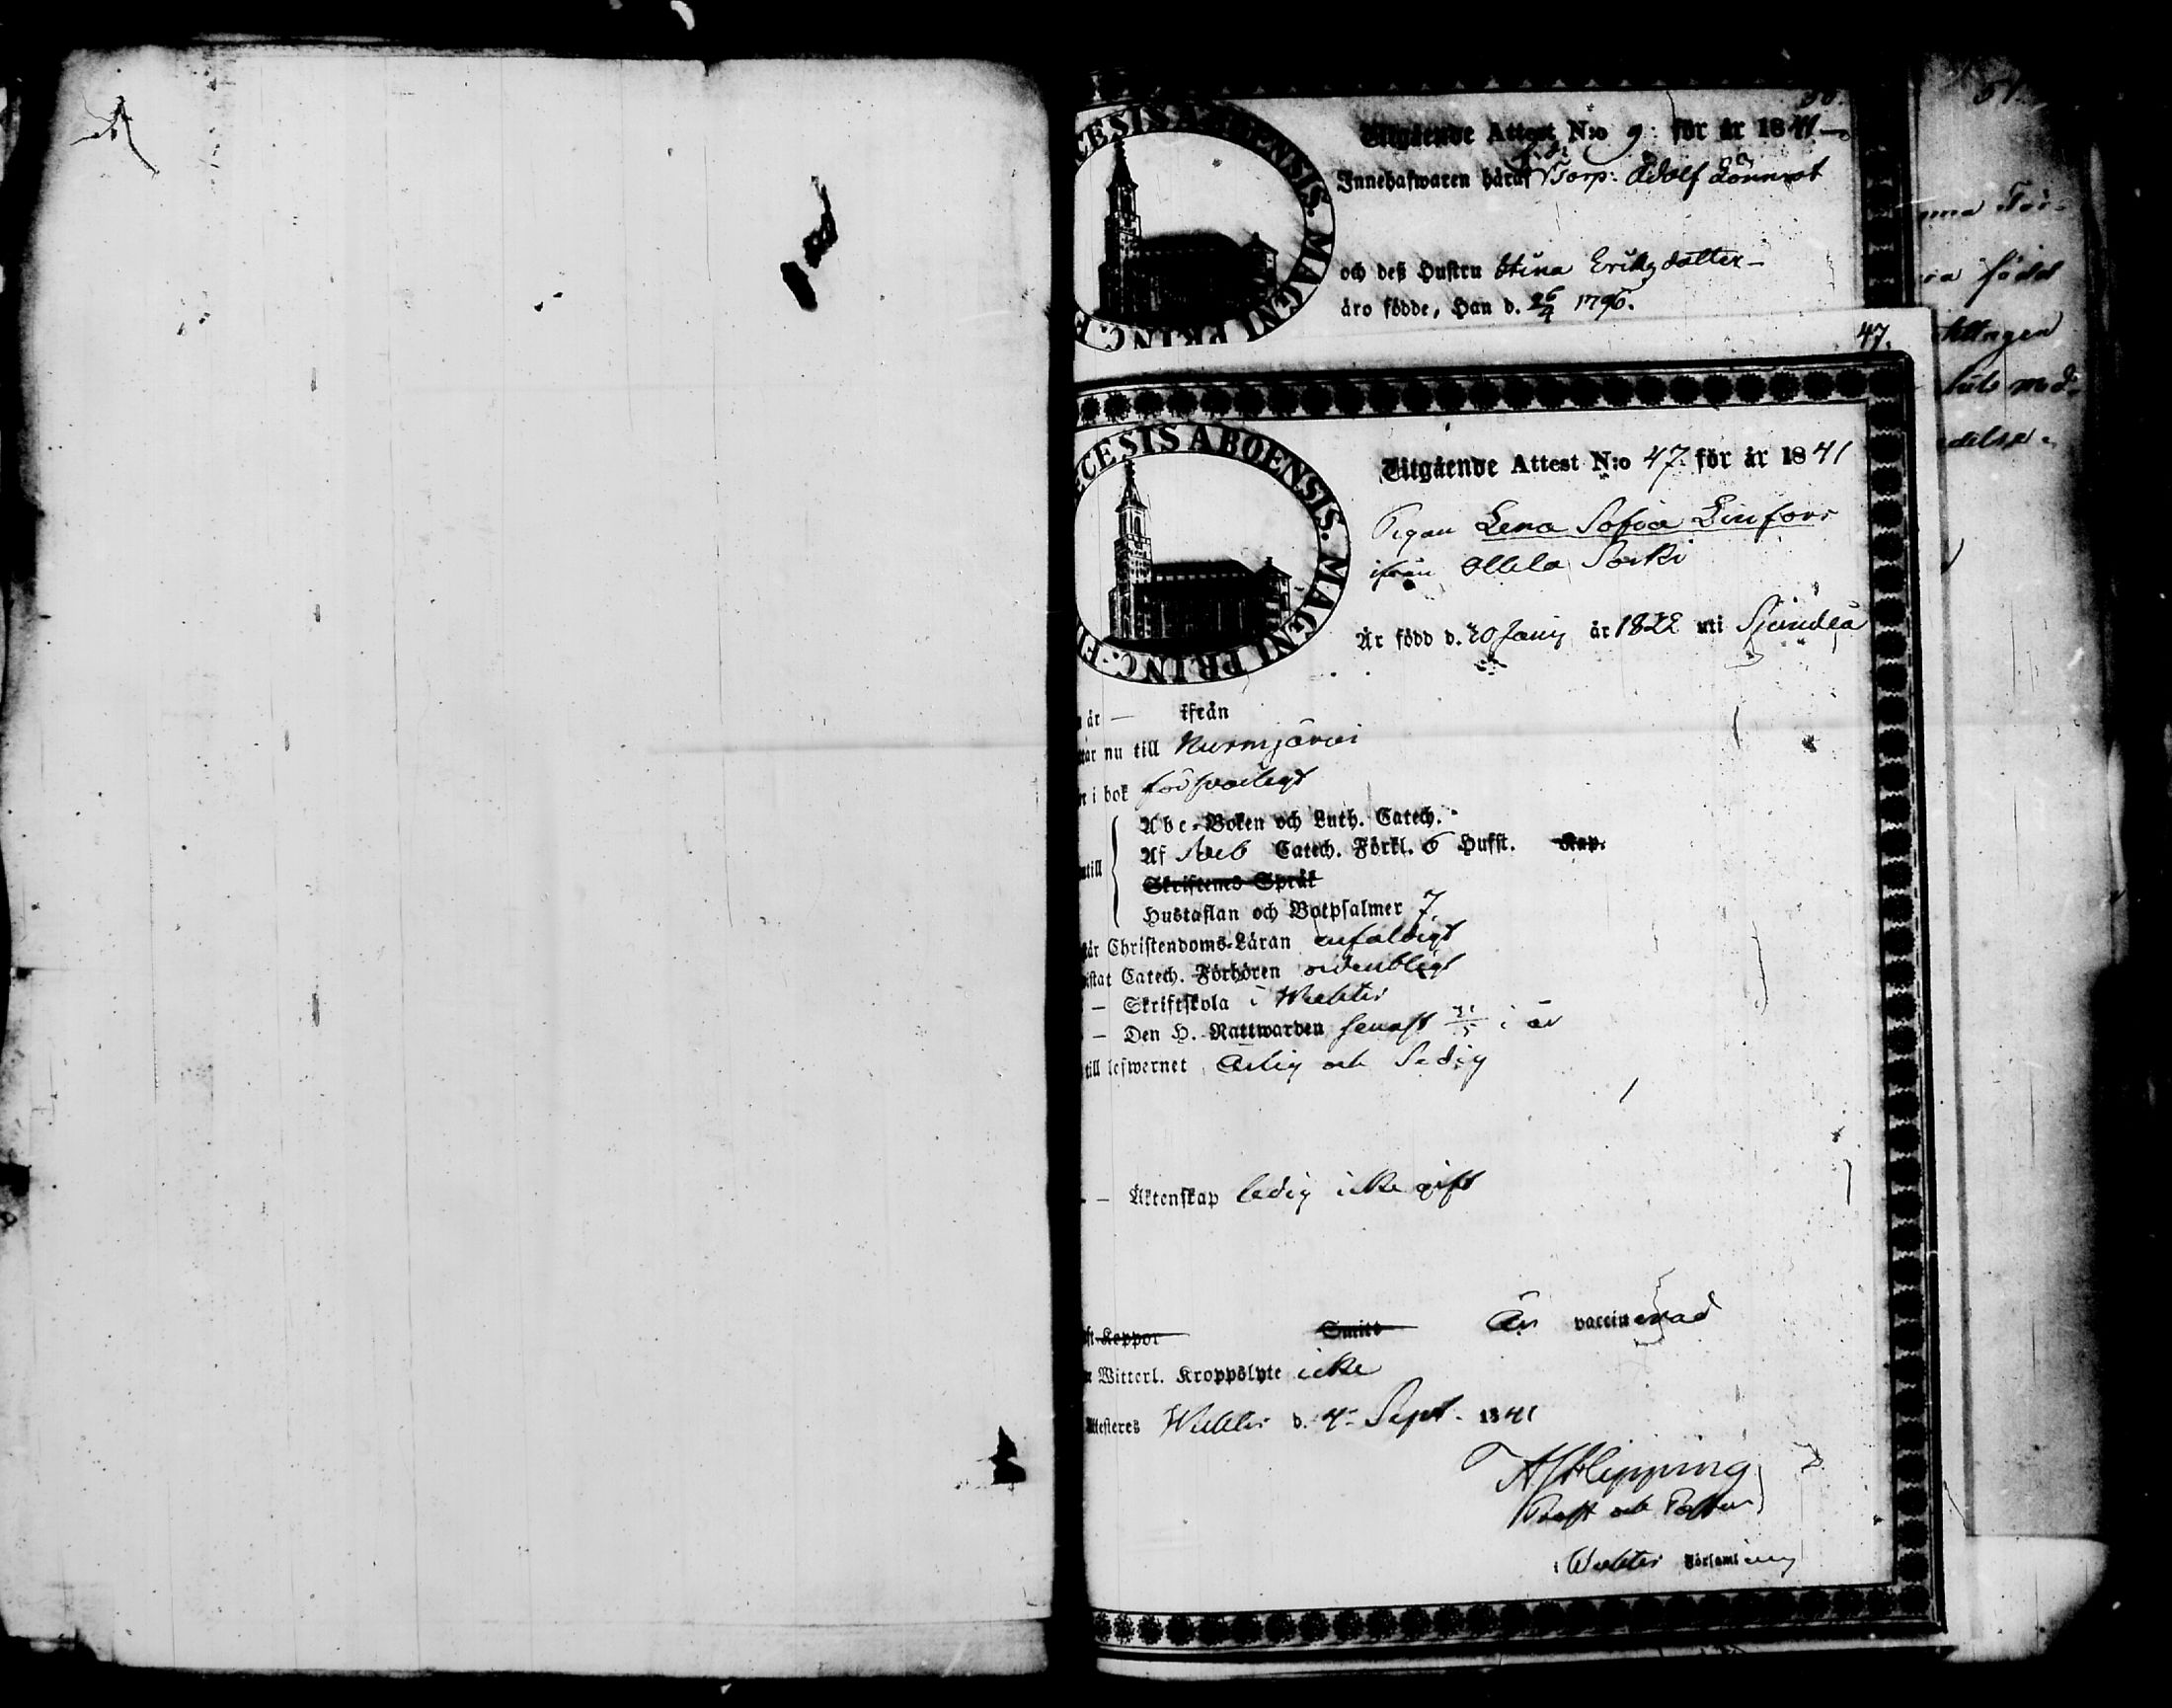 50.
Utgående Attest N:o 9. för år 1841
Innehafwaren häraf Torp: Adolf Lönnrot
och deß Hustru Stina Eriksdotter
äro födde, Han d. 26/4 1796.
DIOECESIS ABOENSIS. MAGNI PRINC. F
51.
född
47.
ECESIS ABOENSIS. MAGNI PRINC. F
Utgående Attest N:o 47. för år 1841
Pigan Lena Sofia Linfors
ifrån Ollila Porki
Är född d. 20 Junij år 1822 uti Sjundeå
år — ifrån
tar nu till Nurmijärvi
n i bok förswarligt
Abc-Boken och Luth. Catech.
Af Sveb Catech. Förkl. 6 Hufst. Kap.
ntill
Skriftenes Språk
Hustaflan och Botpsalmer 7.
tår Christendoms-Läran enfaldigt
istat Catech. Förhören ordentligt
— Skriftskola i Wichtis
— Den H. Nattwarden senast 31/5 i år
till lefwernet Ärlig och Sedig
— Äktenskap ledig icke gift
ft Koppor Smitt Är vaccinerad
r Witterl. Kroppslyte icke
Attesteres Wichtis d. 4 Sept. 1841
A J Hipping
Prost och Pastor
i Wichtis Församling